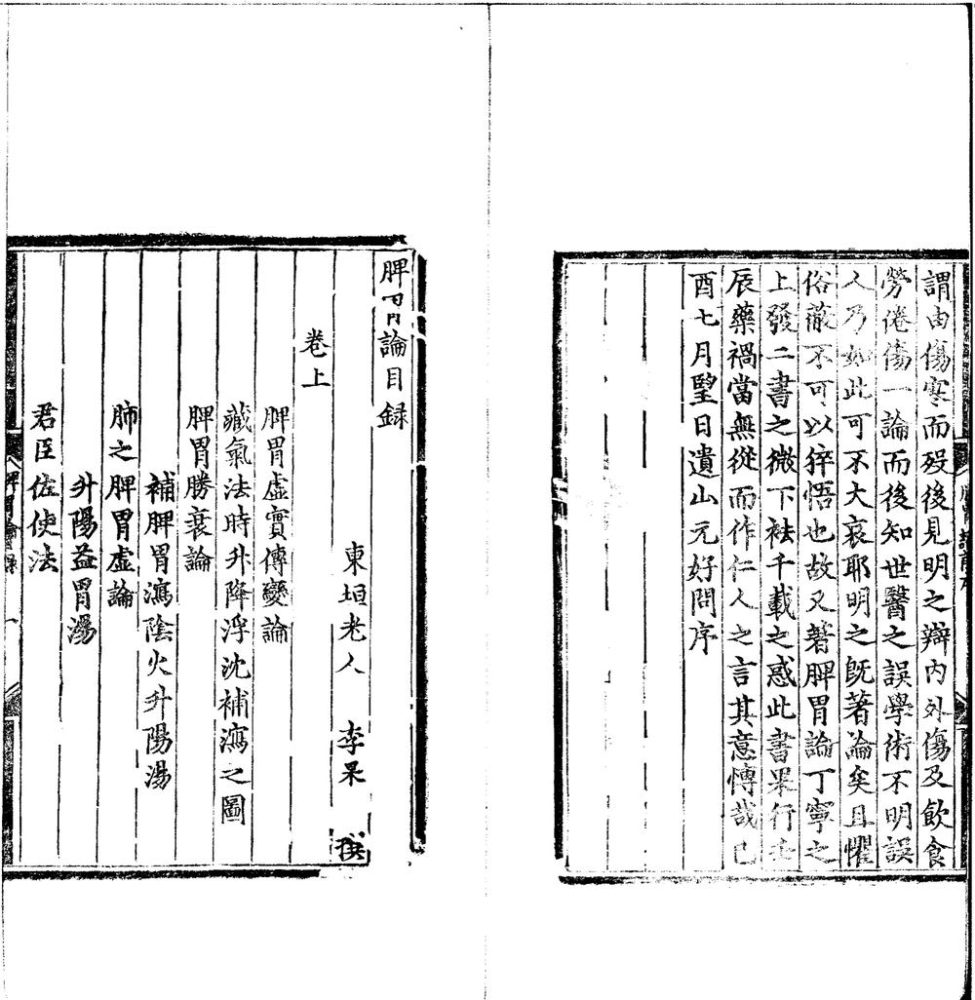 謂由傷寒而歿後見明之辯內外傷及飲食
勞倦傷一論而後知世醫之誤學術不明誤
人乃如此可不大哀耶明之旣著論矣且懼
俗蔽不可以猝悟也故又著脾胃論丁寧之
上發二書之微下袪千載之惑此書果行
辰藥禍當無從而作仁人之言其意愽哉己
酉七月朢日遺山元好問序
脾胃論目録
東垣老人　李杲　撰
卷上
脾胃虛實傳變論
藏氣法時升降浮沈補瀉之圖
脾胃勝衰論
補脾胃瀉陰火升陽湯
肺之脾胃虛論
升陽益胃湯
君臣佐使法
脾胃論目錄　一